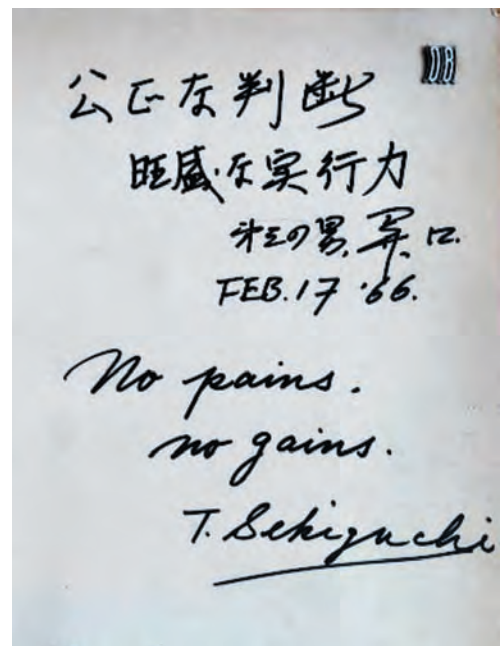 公正な判断
旺盛な実行力
第三の男、関口.
FEB. 17 '66.
No pains.
no gains.
T. Sekiguchi